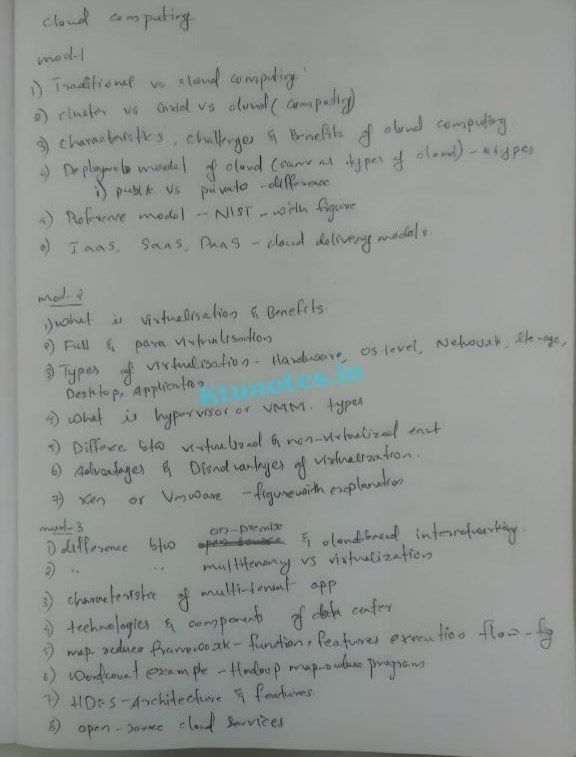 Cloud computing
mod-1
1) Traditional vs cloud computing
2) cluster vs Grid vs cloud (computing)
3) characteristics, challenges & Benefits of cloud computing
4) Deployments model of cloud (same as types of cloud) - 4 types
i) public vs private - difference
5) Reference model - NIST - with figure
6) IaaS, SaaS, PaaS - cloud delivery models
mod-2
1) What is virtualisation & Benefits
2) Full & para virtualisation
3) Types of virtualisation - Hardware, OS level, Network, Storage,
Desktop, Application
Ktunotes.in
4) What is hypervisor or VMM. types
5) Differce btw virtualized & non-virtualized
6) Advantages & Disadvantages of virtualization.
7) Xen or Vmware - figure with explanation
mod-3
on-premix
1) difference btw & cloud-based internetworking.
2) " " multitenancy vs virtualization
3) characteristic of multi-tenant app
4) technologies & components of data center
5) map reduce framework - function, features execution flow - fig
6) Wordcount example - Hadoop map-reduce program
7) HDFS - Architecture & features.
8) open-source cloud services